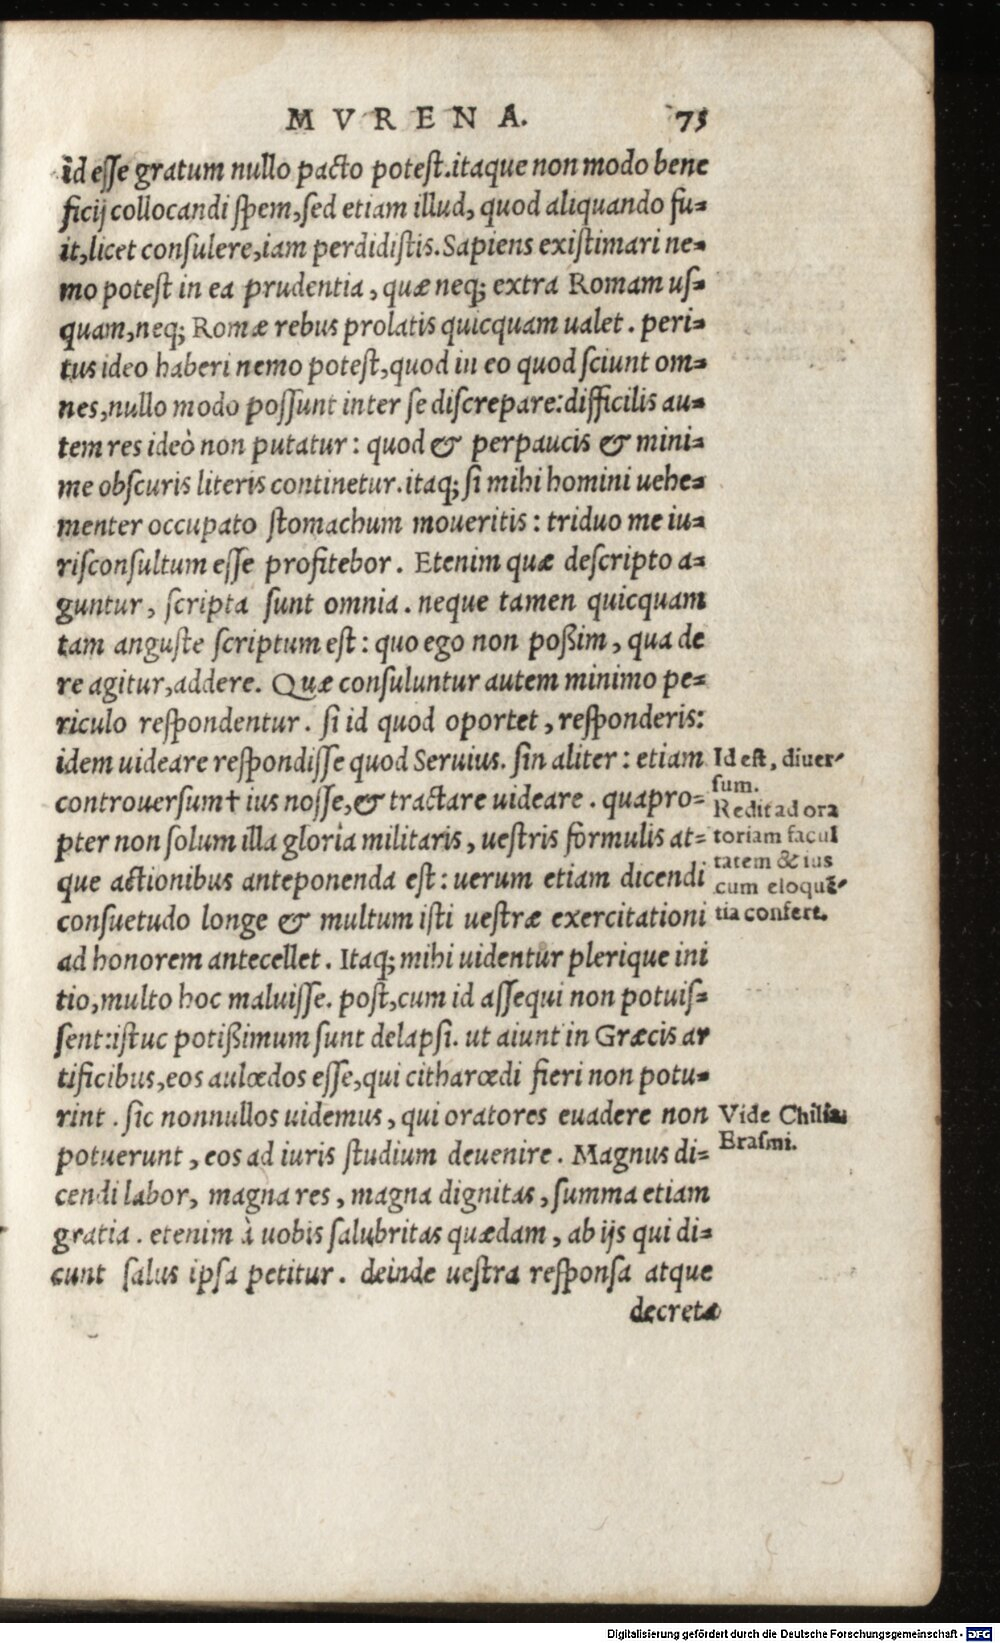 MVRENA. 75
id esse gratum nullo pacto potest.itaque non modo bene
ficij collocandi spem,sed etiam illud, quod aliquando fu-
it,licet consulere,iam perdidistis.Sapiens existimari ne-
mo potest in ea prudentia, quæ neq; extra Romam us-
quam,neq; Romæ rebus prolatis quicquam ualet. peri-
tus ideo haberi nemo potest,quod in eo quod sciunt om-
nes,nullo modo possunt inter se discrepare:difficilis au-
tem res ideò non putatur: quod & perpaucis & mini-
me obscuris literis continetur.itaq; si mihi homini uehe-
menter occupato stomachum moueritis: triduo me iu-
risconsultum esse profitebor. Etenim quæ descripto a-
guntur, scripta sunt omnia. neque tamen quicquam
tam anguste scriptum est: quo ego non poßim, qua de
re agitur,addere. Quæ consuluntur autem minimo pe-
riculo respondentur. si id quod oportet, responderis:
idem uideare respondisse quod Seruius. sin aliter: etiam
controuersum† ius nosse,& tractare uideare. quapro-
pter non solum illa gloria militaris, uestris formulis at-
que actionibus anteponenda est: uerum etiam dicendi
consuetudo longe & multum isti uestræ exercitationi
ad honorem antecellet. Itaq; mihi uidentur plerique ini
tio,multo hoc maluisse. post,cum id assequi non potuis-
sent:istuc potißimum sunt delapsi. ut aiunt in Græcis ar
tificibus,eos aulœdos esse,qui citharœdi fieri non potu-
rint. sic nonnullos uidemus, qui oratores euadere non
potuerunt, eos ad iuris studium deuenire. Magnus di-
cendi labor, magna res, magna dignitas, summa etiam
gratia. etenim à uobis salubritas quædam, ab ijs qui di-
cunt salus ipsa petitur. deinde uestra responsa atque
decreta
Id est, diuer-
sum.
Redit ad ora
toriam facul
tatem & ius
cum eloquē-
tia confert.
Vide Chilia.
Erasmi.
Digitalisierung gefördert durch die Deutsche Forschungsgemeinschaft - DFG